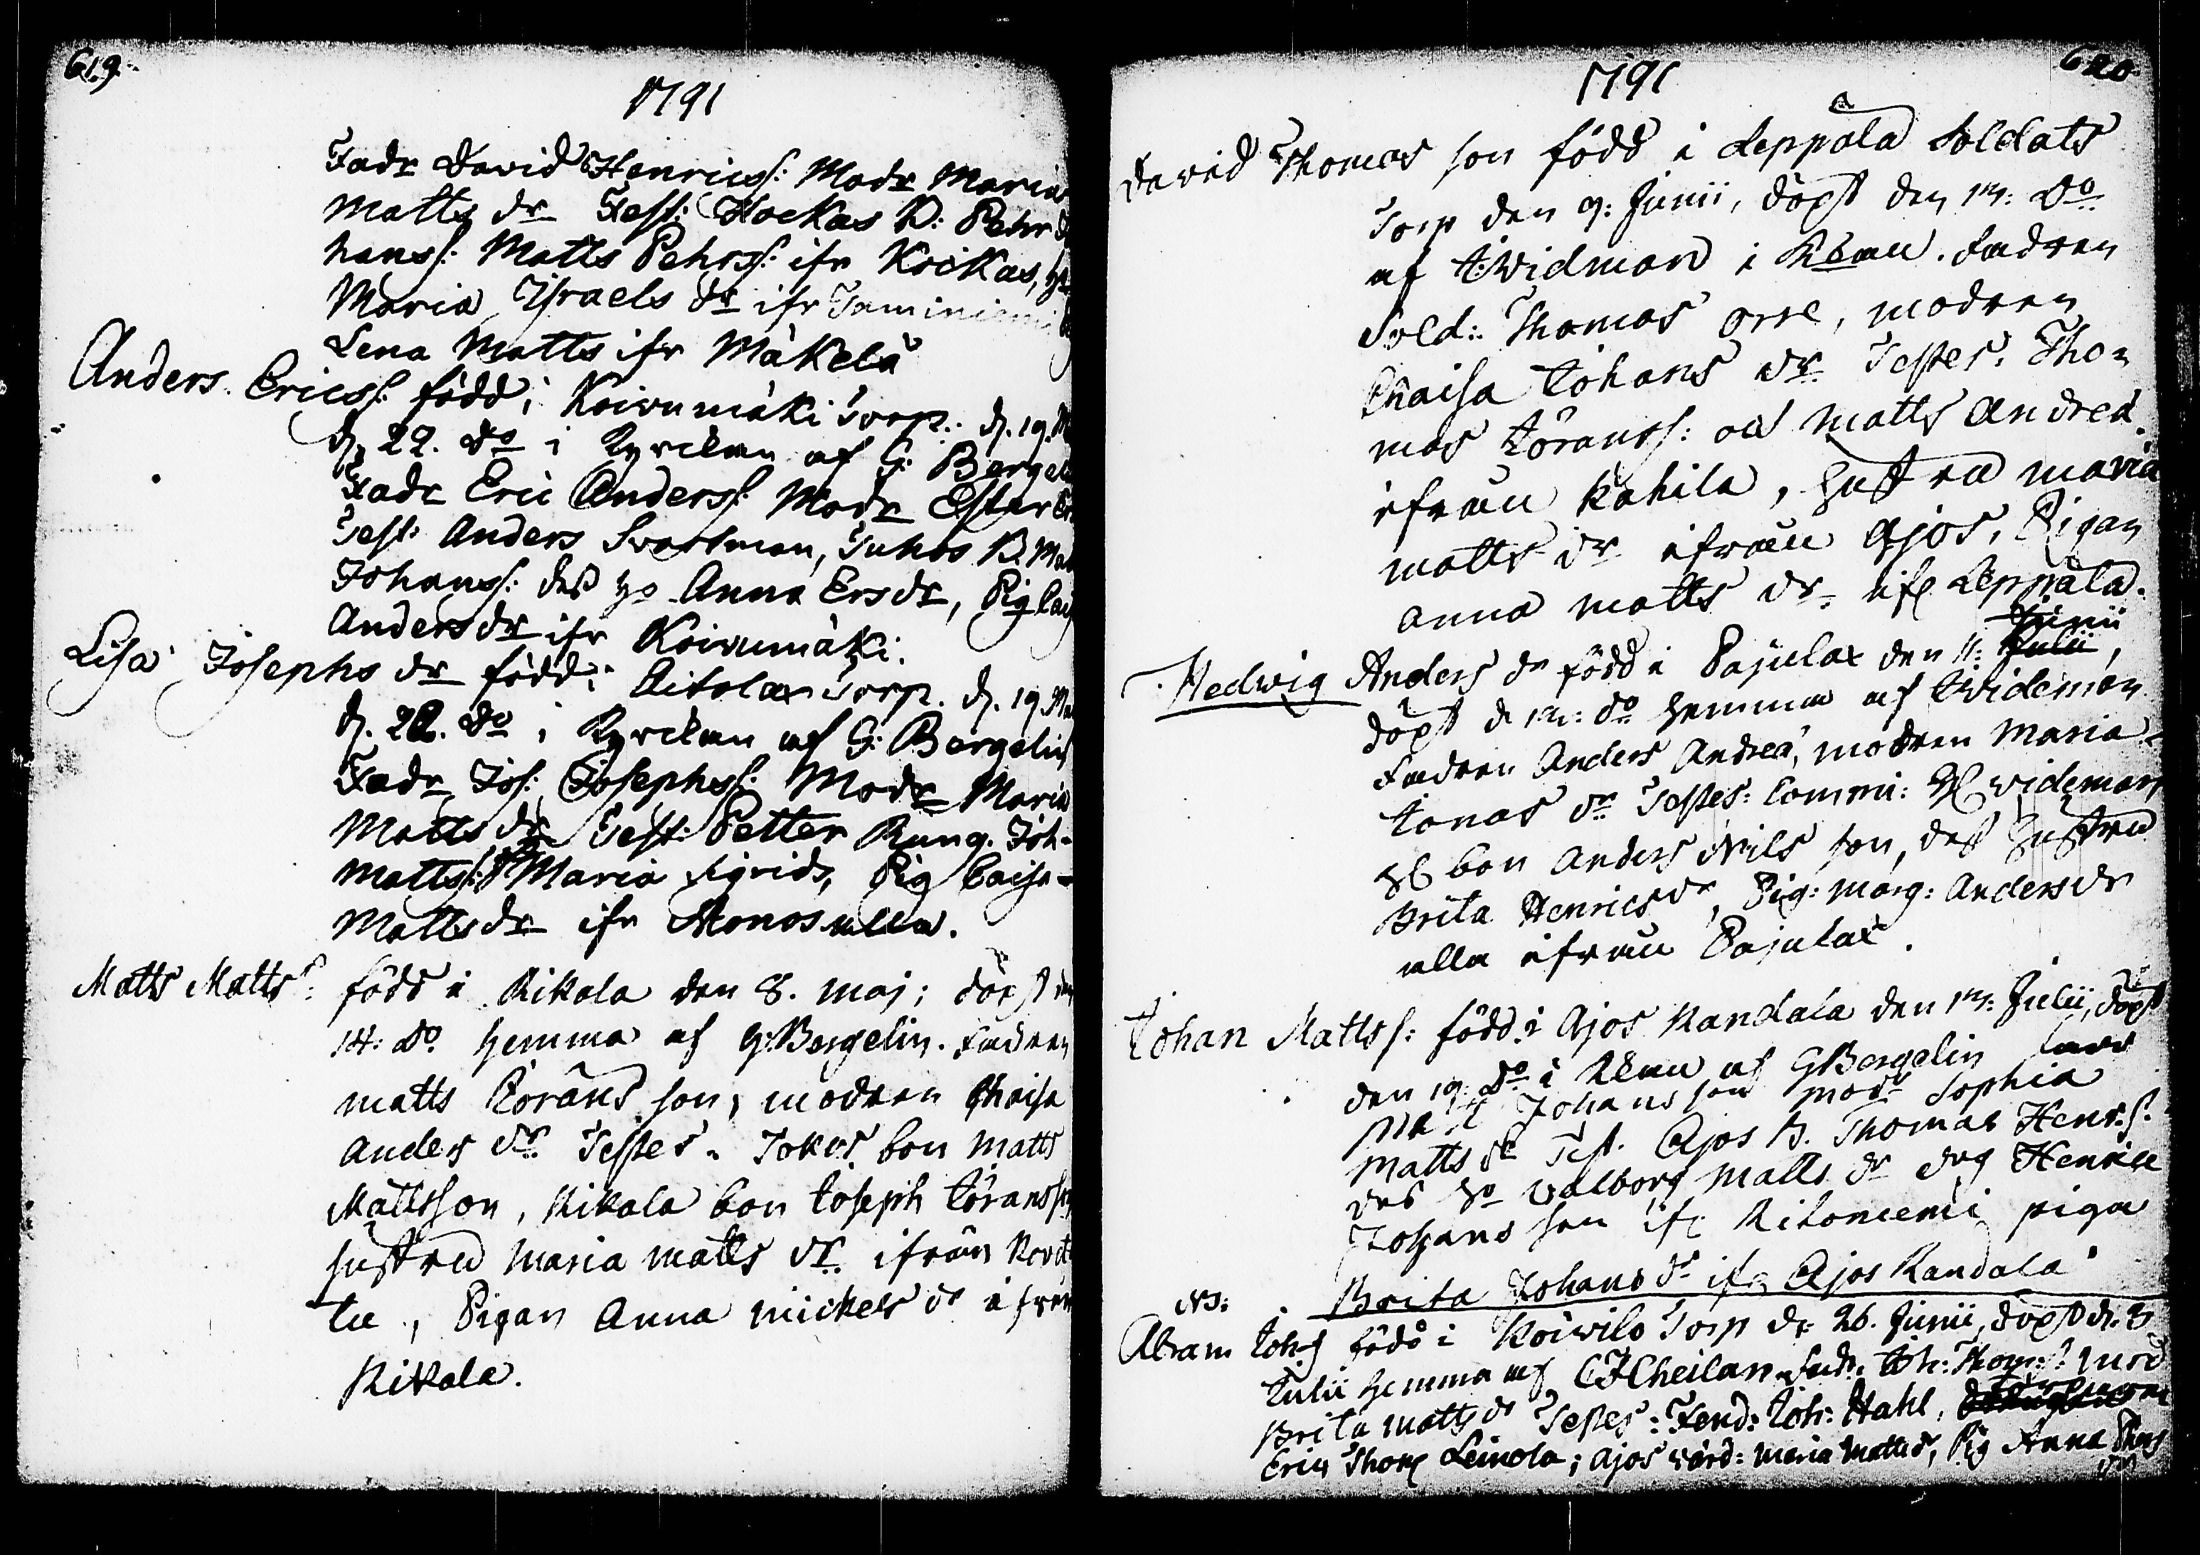 619.
1791
Fadr David Henricss: Modr Maria
Matts dr Test: Hockas B: Pehr
hanss: Matts Pehrss: ifr Krickas,
Maria Israels dr ifr
Lena Matts ifr Mäkelä
Anders Ericss: född i Koivumäki Torp. d. 19. M
d. 22. do i Kyrckan af G: Bergel
Fadr Eric Anderss: Modr Ester
Test: Anders Svartman, Juhos B. Mat
Johanss: des ho Anna Ersdr, Pig Cais
Andersdr ifr Koivumäki.
Lisa Josephs dr född i Aitolax Torp. d. 19 M
d. 22. do i Kyrckan af G: Bergelin
Fadr Jos: Josephss: Modr Maria
Matts dr Test: Petter Rung. Joh-
Mattss: Maria Sigrids, Pig Caisa
Mattsdr ifr
Matts Matts s: född i Kikala den 8. Maj; döpt den
14: do hemma af G: Bergelin. Fadren
Matts Göransson, modren Chaisa
Anders dr. Testes. Jokos bon Matts
Mattsson, Kikala bon Joseph Jöranss
hustru Maria Matts dr. ifrån
tu, Pigan Anna Mickels dr ifrån
Kikala.
620
1791
David Thomas son född i Leppälä Soldats
Torp den 9: Junii, döpt den 14: do
af Widman i Kkan. Fadren
Sold: Thomas Orre, modren
Chaisa Johans dr. Testes. Tho-
mas Jöranss: och Matts Andreæ
ifrån Kahila, hustru Maria
Matts dr ifrån Ajos, Pigan
Anna Matts dr. if Leppälä.
Junii
Hedwig Anders dr född i Pajulax den 11: Julii,
döpt d 14: do hemma af Wideman
Fadren Anders Andreæ, modren Maria
Jonas dr Testes: Commi: H Wideman
bon Anders Nils son, des hustru
Brita Henricsdr, Pig: Marg: Andersdr
alla ifrån Pajulax.
Johan Mattss: född i Ajos Kandala den 14: Julii, döpt
den 19. do i Kkan af G Bergelin fadr
Matt Johansson modr Sophia
Matts dr Test. Ajos B. Thomas Henrs:
des ho Walborg Matts dr drg Henric
Johansson ifr Ritoniemi piga
Brita Johans dr ifr Ajos Kandala
NB:
Abram Johs född i Koiwisto Torp d: 26. Junii, döpt d. 3
Julii hemma af C F Cheilan. Fadr. Joh: Thoms: mod
Brita Matts dr Testes: Fend: Joh: Stahl,
Eric Thom Leinola; Ajos wärd: Maria Mattsd, Pig Anna Thoms
dr